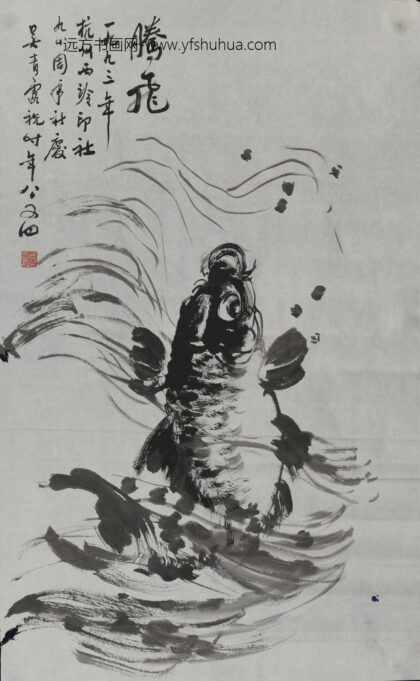 腾飞
一九九三年
杭州西泠印社
九十周年社庆
吴青霞祝时年八又四
远方书画网 www.yfshuhua.com